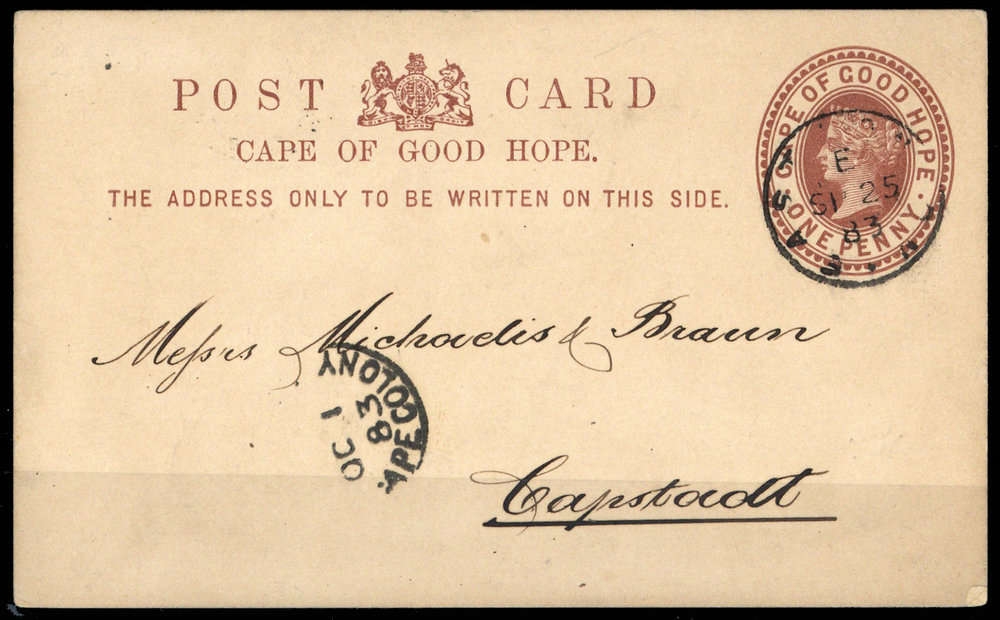 POST CARD
CAPE OF GOOD HOPE.
THE ADDRESS ONLY TO BE WRITTEN ON THIS SIDE.
CAPE OF GOOD HOPE.
ONE PENNY.
E
25
83
Messrs Michaelis & Braun
APE COLONY
OC 1
83
Capstadt